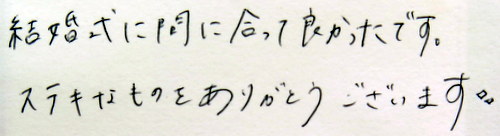 結婚式に間に合って良かったです。
ステキなものをありがとうございます。。